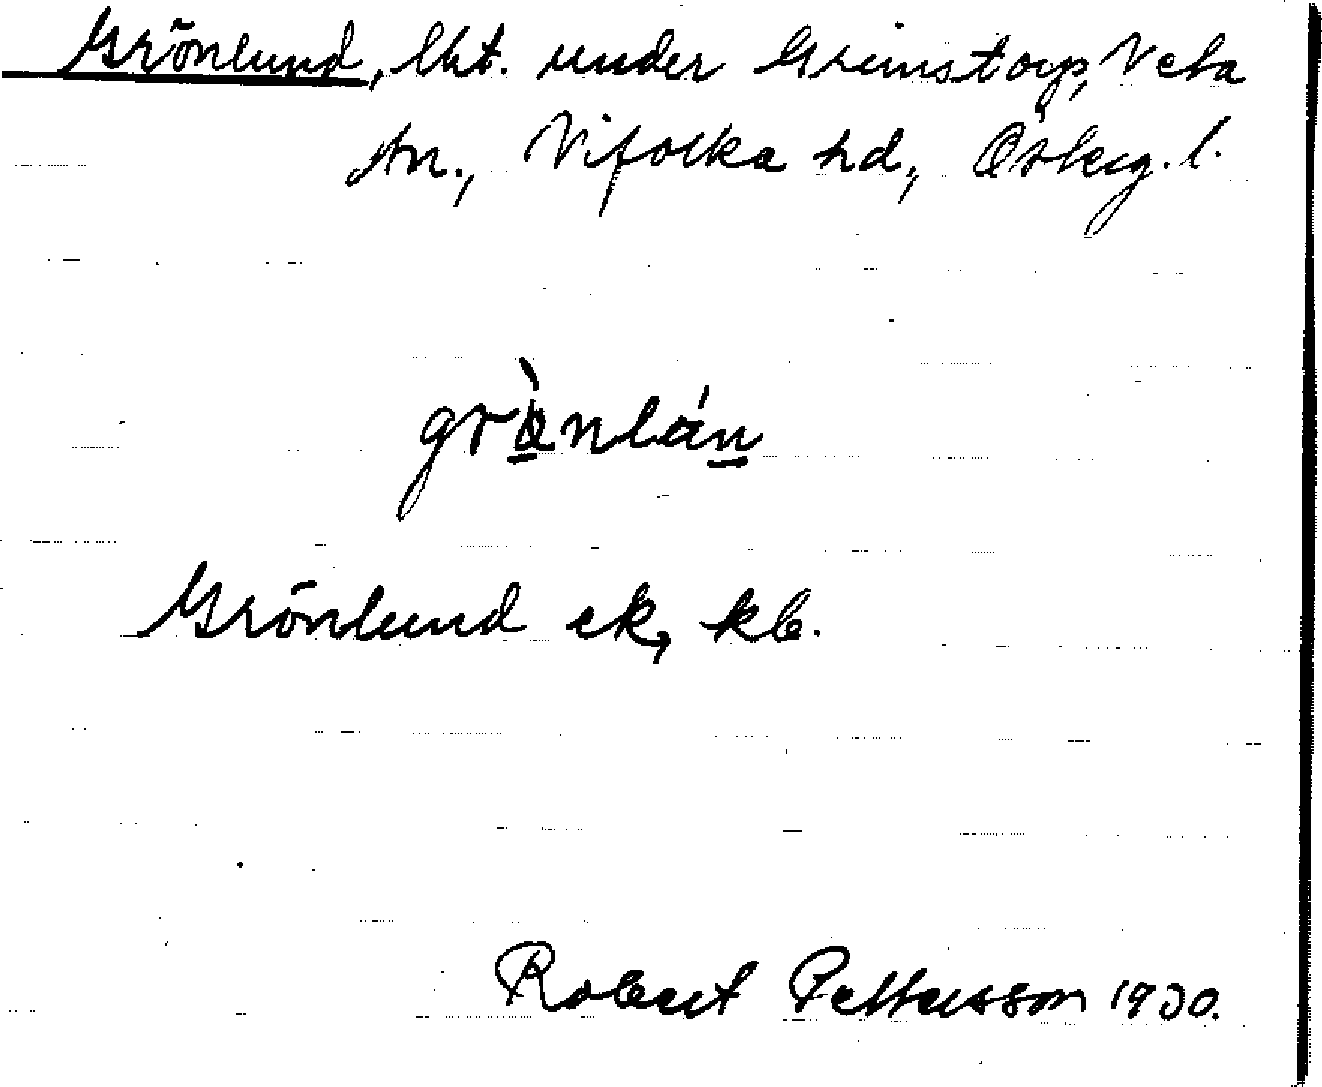 Grönlund, lht. under Grimstorp, Veta
sn., Vifolka hd, Österg. l.
grònlán
Grönlund ek, kb.
Robert Pettersson 1930.